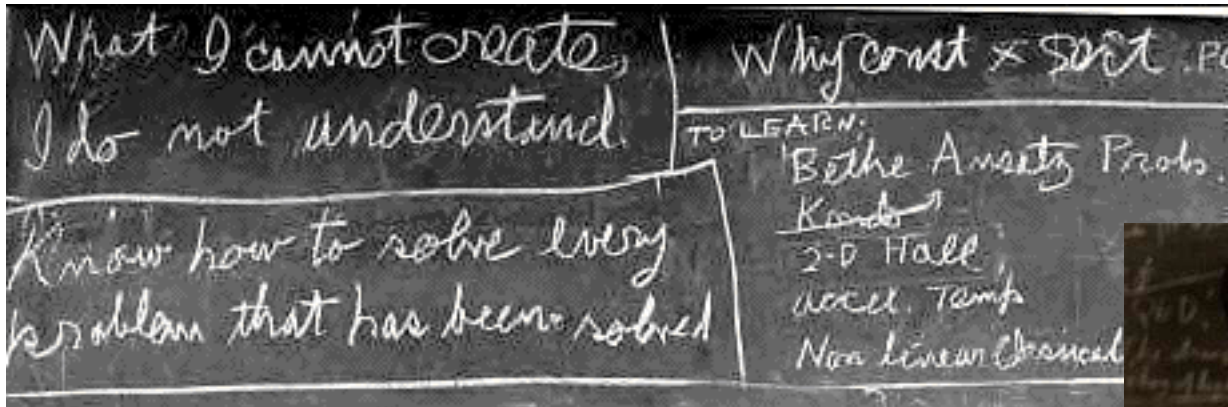 What I cannot create,
I do not understand.
Know how to solve every
problem that has been solved
Why const × sort . PO
TO LEARN:
Bethe Ansatz Probs.
Kondo
2-D Hall
accel. Temp
Non linear Classical